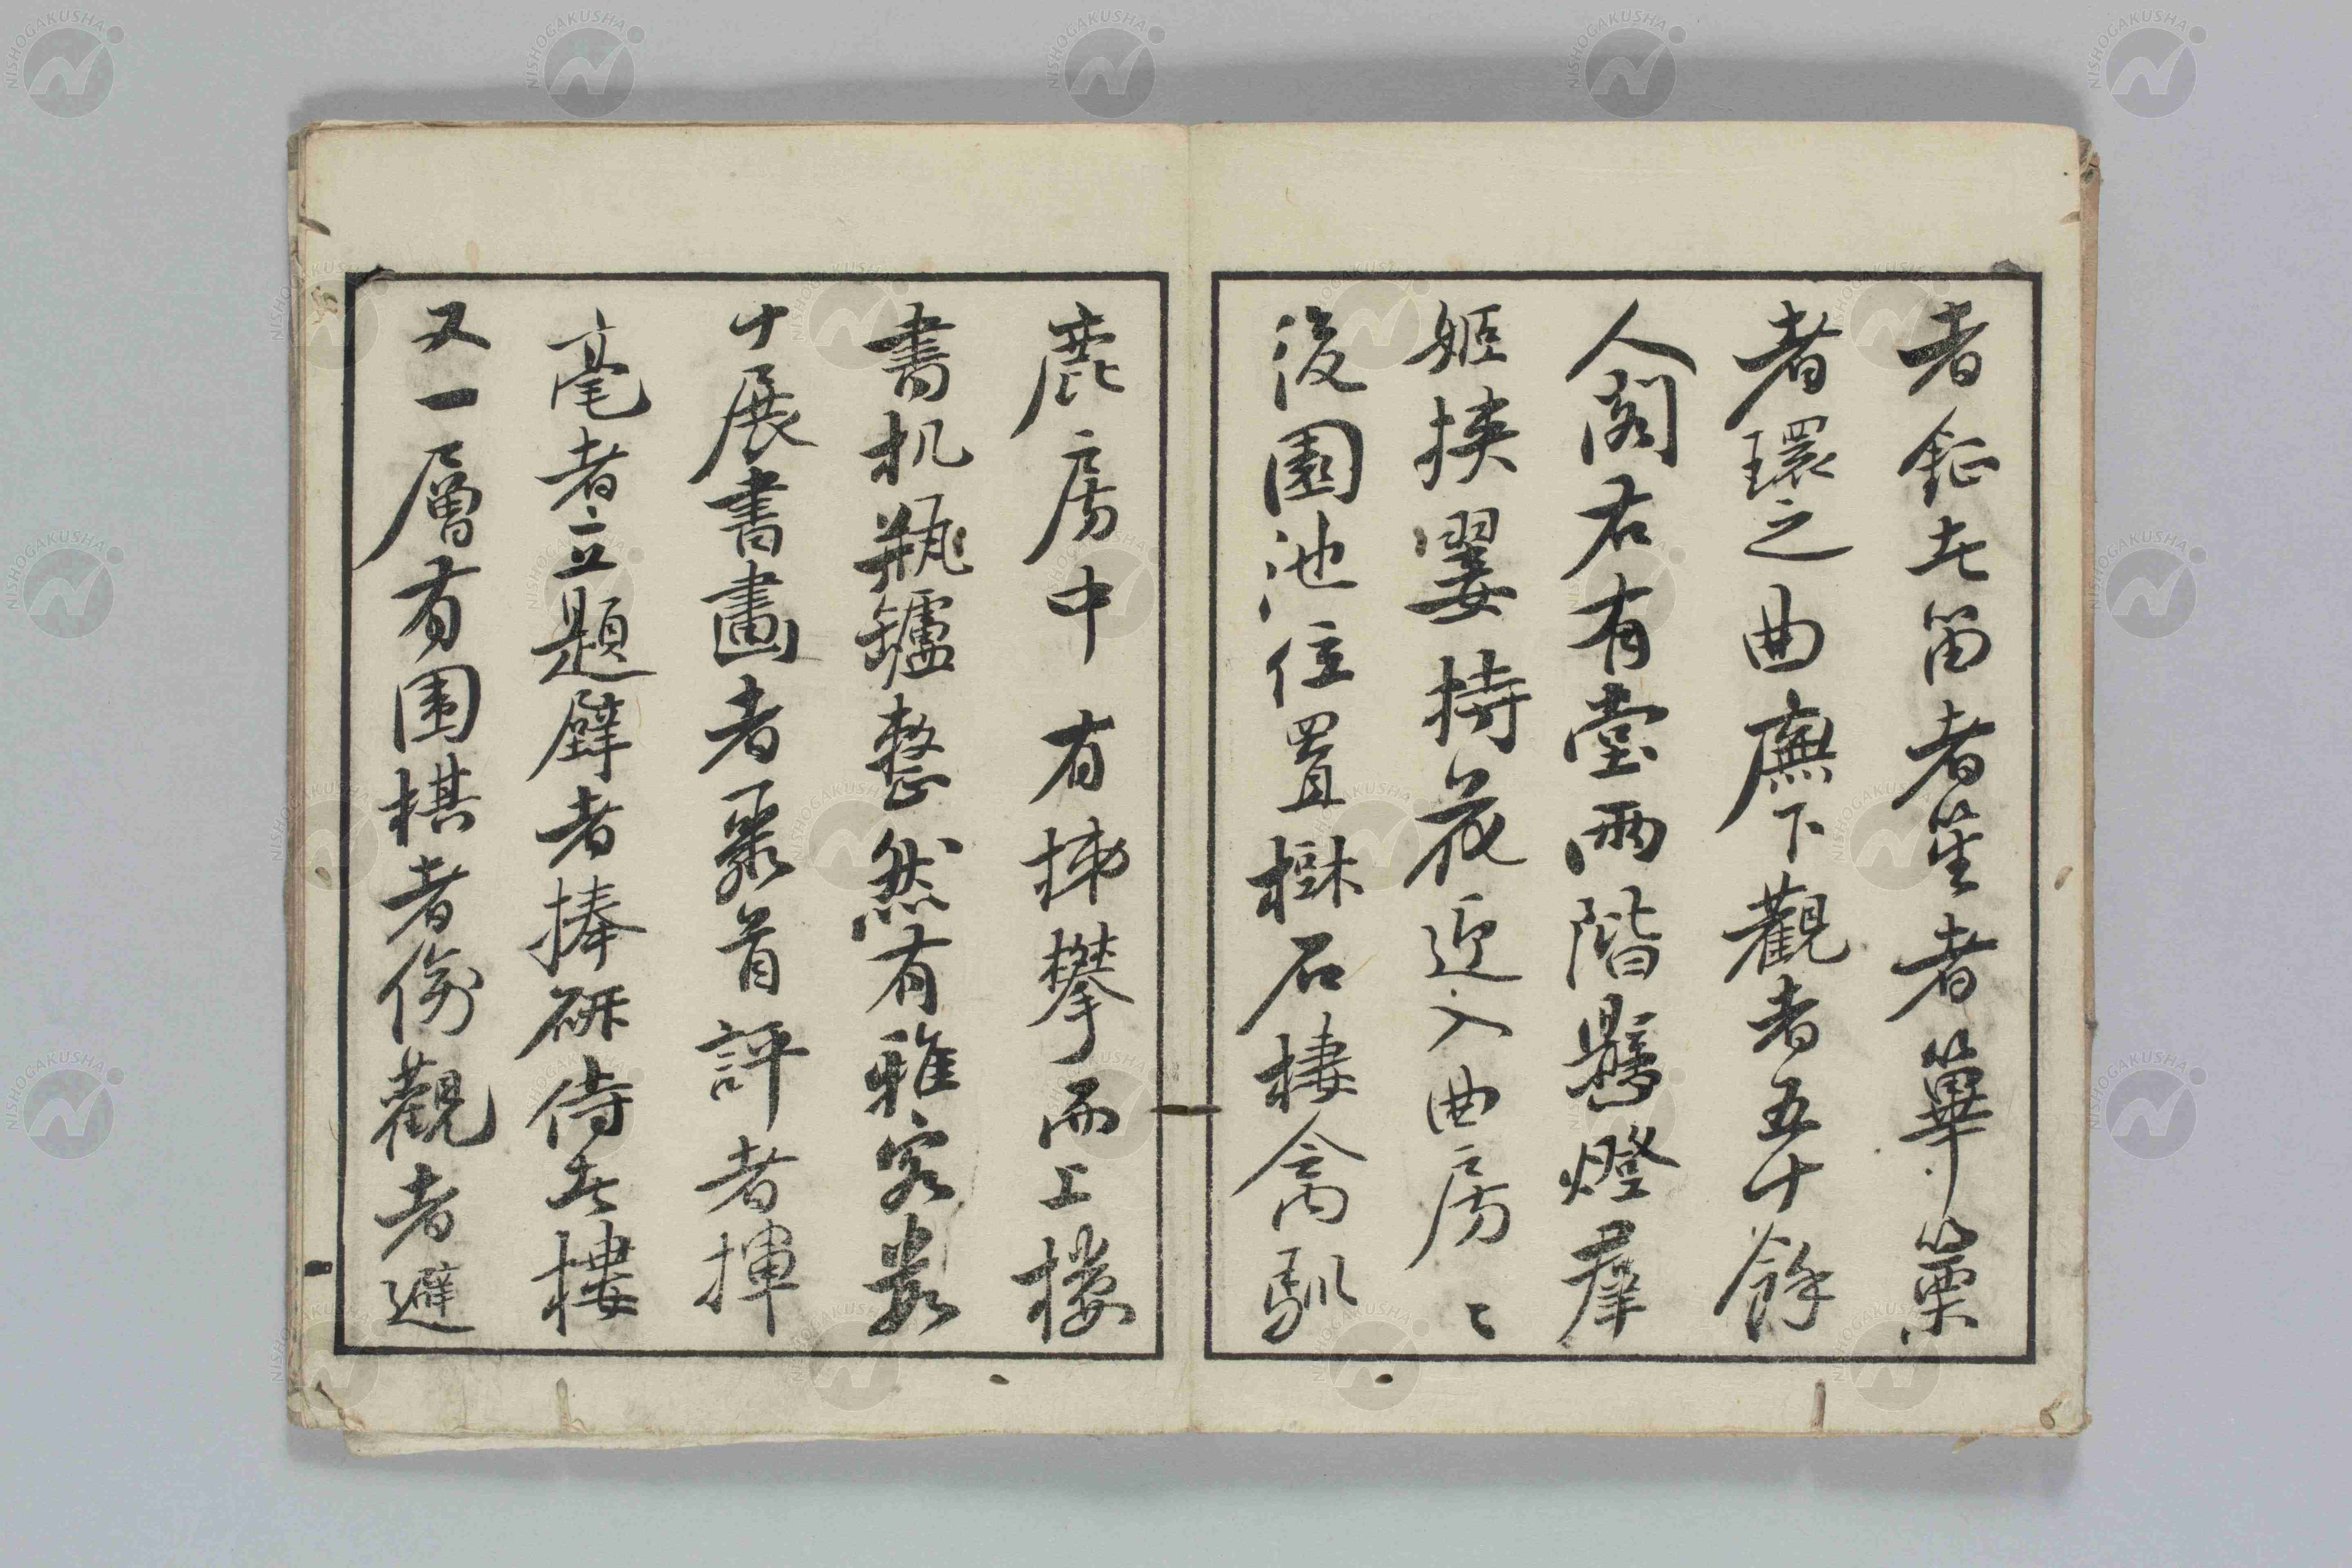 者鉦者笛者笙者篳篥
者環之曲廡下觀者五十餘
人閣右有堂兩階懸燈群
姬挾嬰持花迎入曲房〻
後園池位置樹石棲禽馴
鹿房中有梯攀而上樓
書机瓶鑪整然有雅客數
十展書畫者聚首評者揮
毫者立題壁者捧硏侍者樓
又一層有圍棋者傍觀者避
NISHOGAKUSHA